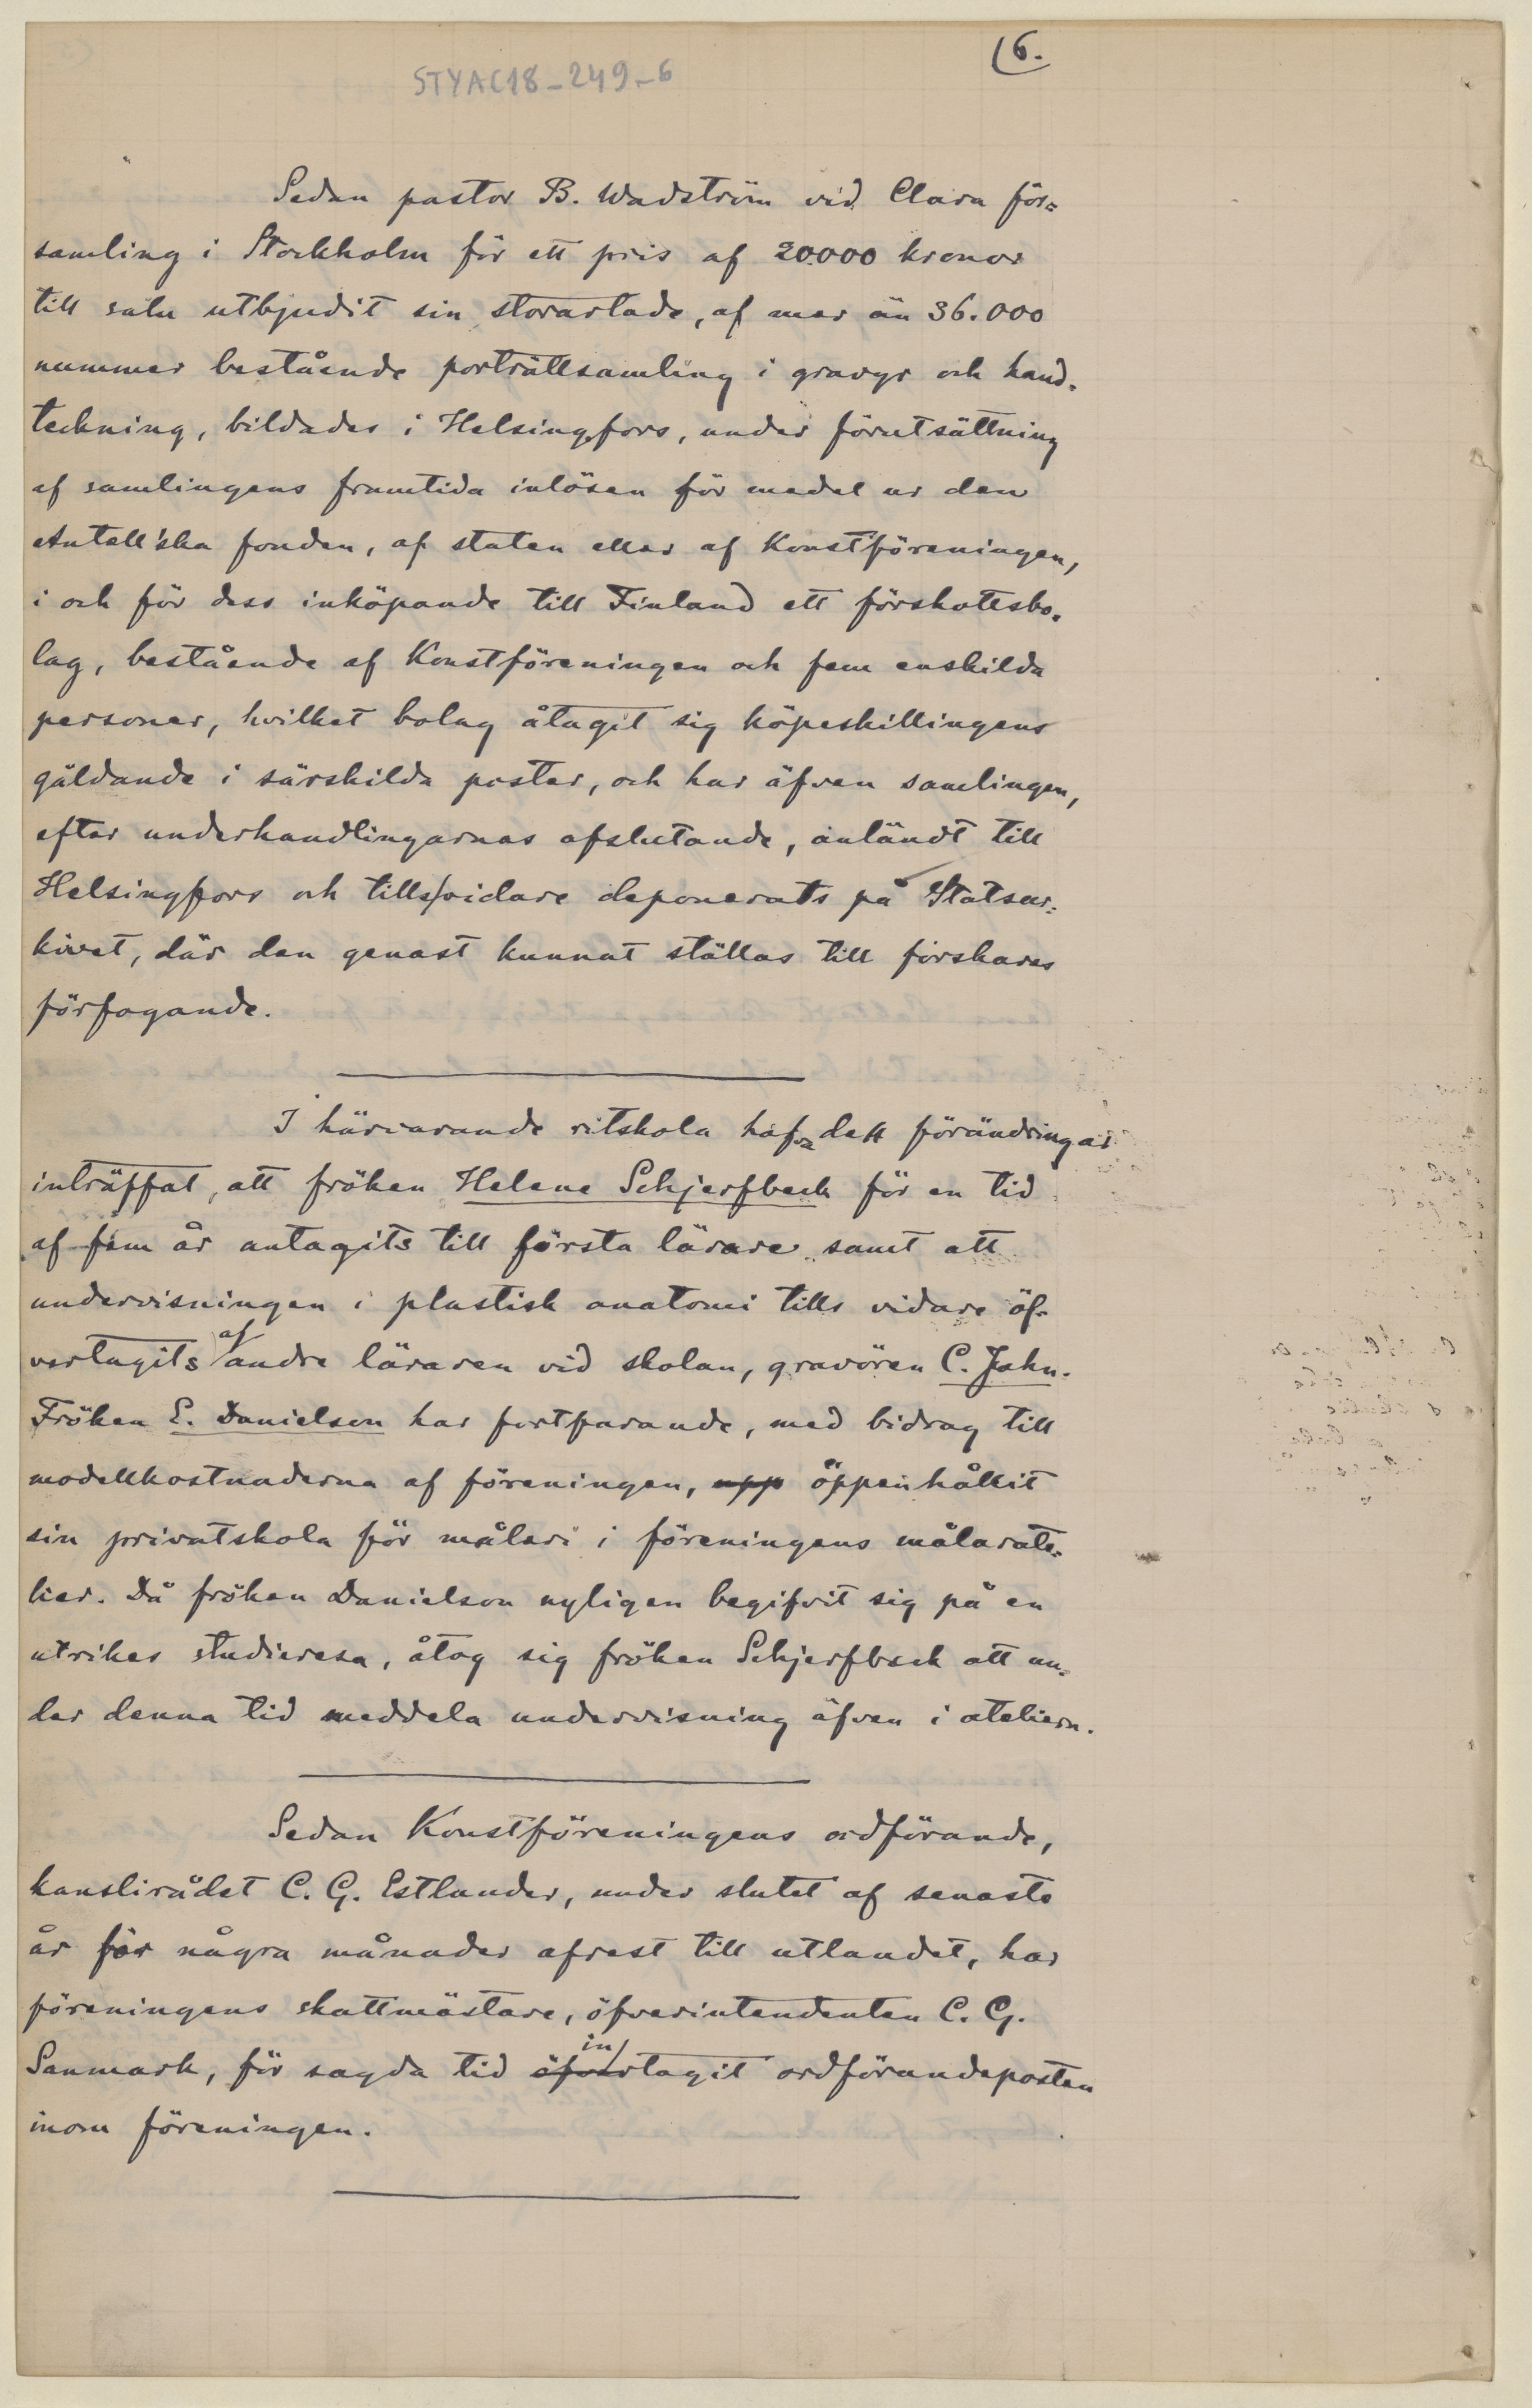 (6.
STYAC18-249-6
Sedan pastor B. Wadström vid Clara för=
samling i Stockholm för ett pris af 20.000 kronor
till salu utbjudit sin storartade, af mer än 36.000
nummer bestående porträttsamling i gravyr och hand=
teckning, bildades i Helsingfors, under förutsättning
af samlingens framtida inlösen för medel ur den
Antell'ska fonden, af staten eller af Konstföreningen,
i och för dess inköpande till Finland ett förskottsbo=
lag, bestående af Konstföreningen och fem enskilda
personer, hvilket bolag åtagit sig köpeskillingens
gäldande i särskilda poster, och har äfven samlingen,
efter underhandlingarnas afslutande, anländt till
Helsingfors och tills/vidare deponerats på Statsar=
kivet, där den genast kunnat ställas till forskares
förfogande.
I härvarande ritskola haf dett förändringar
inträffat, att fröken Helene Schjerfbeck för en tid
af fem år antagits till första lärare samt att
undervisningen i plastisk anatomi tills vidare öf=
vertagits af andre läraren vid skolan, gravören C. Jahn.
Fröken E. Danielson har fortfarande, med bidrag till
modellkostnaderna af föreningen, upp öppenhållit
sin privatskola för måleri i föreningens målarate=
lier. Då fröken Danielson nyligen begifvit sig på en
utrikes studieresa, åtog sig fröken Schjerfbeck att un=
der denna tid meddela undervisning äfven i ateliern.
Sedan Konstföreningens ordförande,
kanslirådet C. G. Estlander, under slutet af senaste
år för några månader afrest till utlandet, har
föreningens skattmästare, öfverintendenten C. G.
Sanmark, för sagda tid öfvertagit in ordförandeposten
inom föreningen.